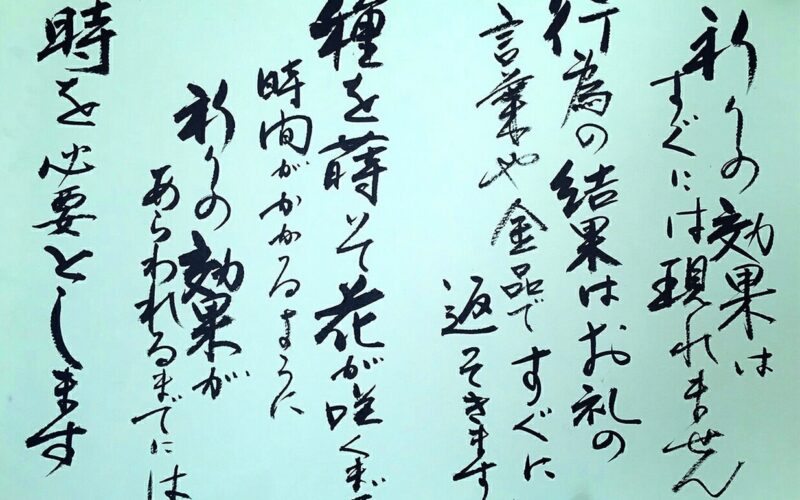 祈りの効果は
すぐには現れません
行為の結果はお礼の
言葉や金品ですぐに
返ってきます
種を蒔いて花が咲くまで
時間がかかるように
祈りの効果が
あらわれるまでには
時を必要とします